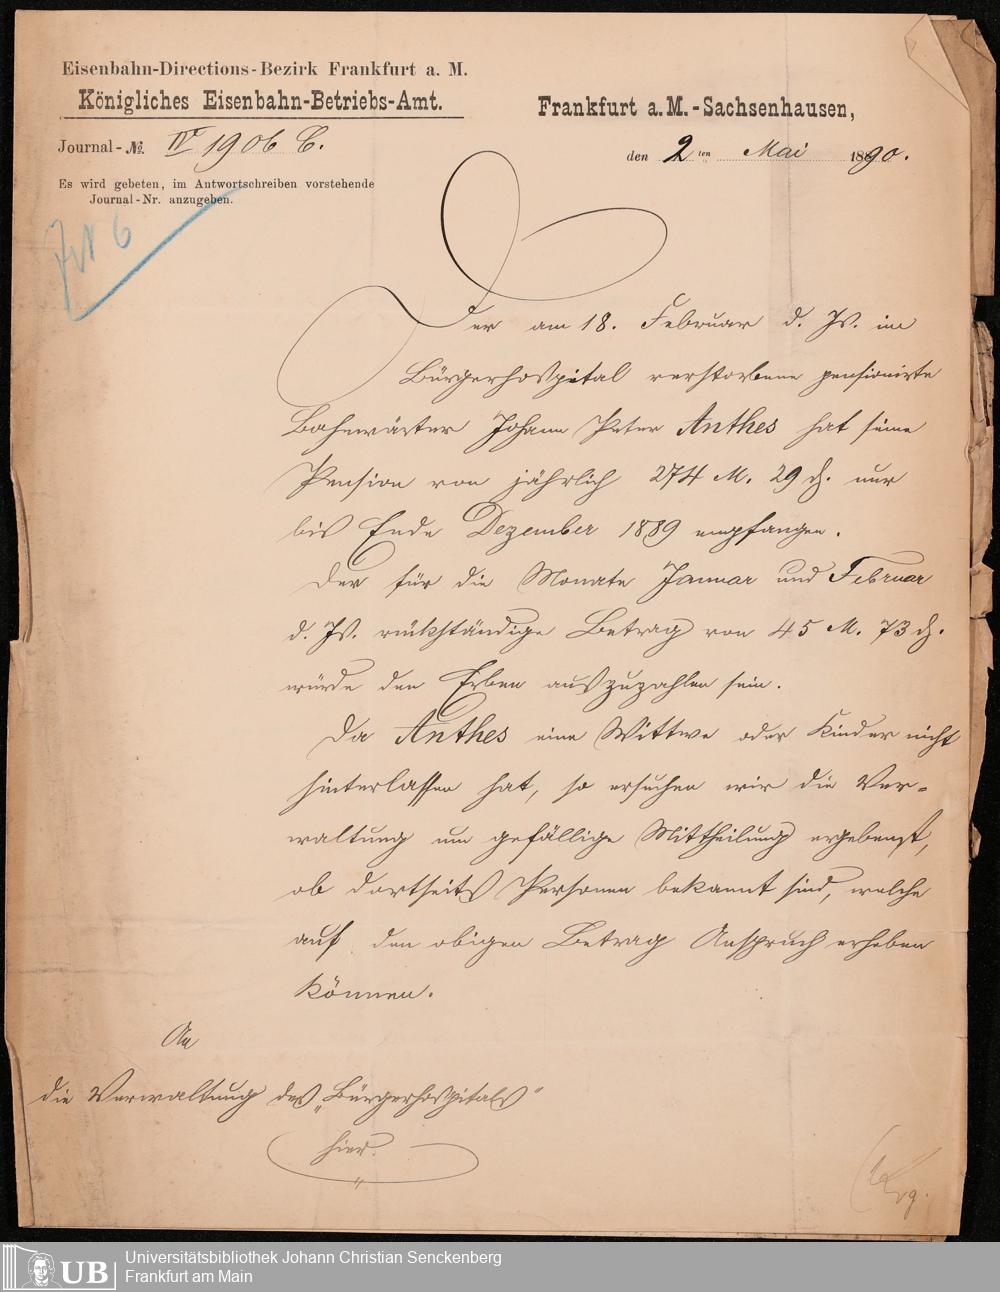 Eisenbahn-Directions-Bezirk Frankfurt a. M.
Königliches Eisenbahn-Betriebs-Amt.
Journal-№. IV 1906 C.
Es wird gebeten, im Antwortschreiben vorstehende
Journal-Nr. anzugeben.
Frankfurt a. M.-Sachsenhausen,
den 2ten Mai 1890.
6
Der am 18. Februar d. Js. im
Bürgerhospital verstorbene pensionirte
Bahnwärter Johann Peter Anthes hat seine
Pension von jährlich 274 M. 29 ₰. nur
bis Ende Dezember 1889 empfangen.
Der für die Monate Januar und Februar
d. Js. rückständige Betrag von 45 M. 73 ₰.
würde den Erben auszuzahlen sein.
Da Anthes eine Wittwe oder Kinder nicht
hinterlassen hat, so ersuchen wir die Ver-
waltung um gefällige Mittheilung ergebenst,
ob dortseits Personen bekannt sind, welche
auf den obigen Betrag Anspruch erheben
können.
An
die Verwaltung des „Bürgerhospitals"
hier.
UB
Universitätsbibliothek Johann Christian Senckenberg
Frankfurt am Main